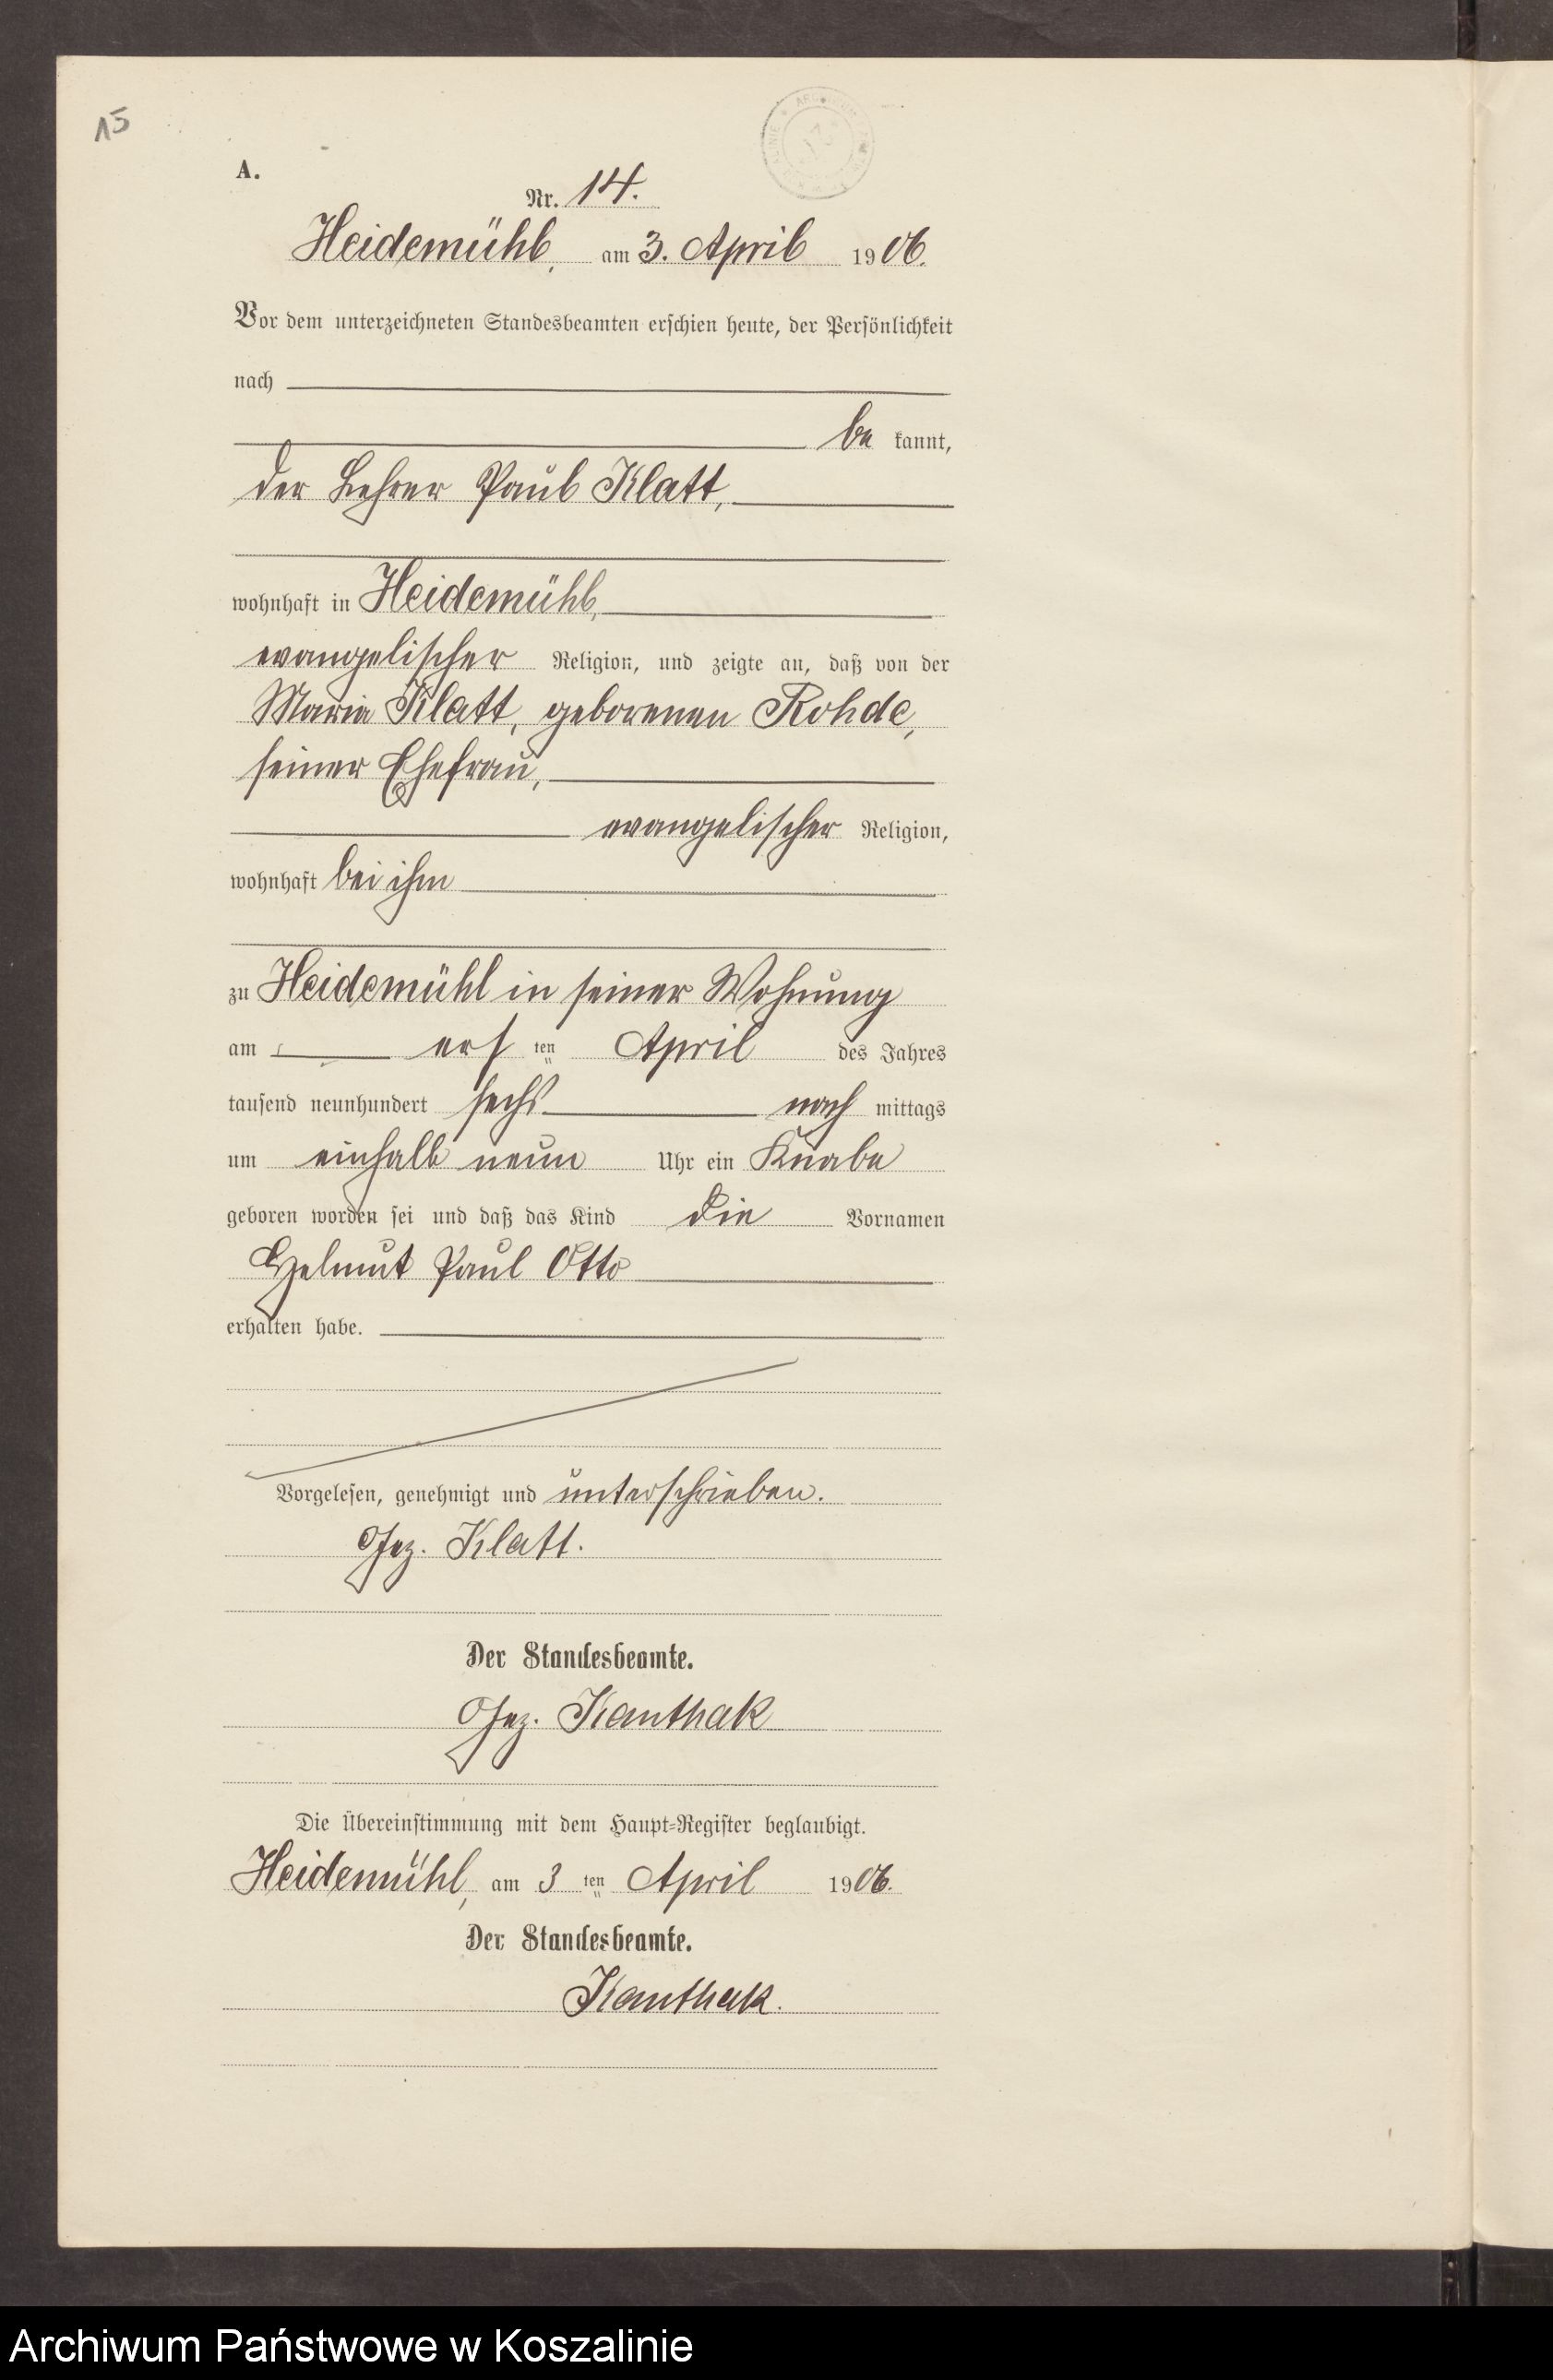 15
A.
Nr. 14.
Heidemühl, am 3. April 1906.
Vor dem unterzeichneten Standesbeamten erschien heute, der Persönlichkeit
nach
be kannt,
der Lehrer Paul Klatt,
wohnhaft in Heidemühl,
evangelischer Religion, und zeigte an, daß von der
Maria Klatt, geborenen Rohde,
seiner Ehefrau,
evangelischer Religion,
wohnhaft bei ihm
zu Heidemühl in seiner Wohnung
am ers ten April des Jahres
tausend neunhundert sechs nach mittags
um einhalb neun Uhr ein Knabe
geboren worden sei und daß das Kind die Vornamen
Helmut Paul Otto
erhalten habe.
Vorgelesen, genehmigt und unterschrieben.
Gez. Klatt.
Der Standesbeamte.
Gez. Kanthak
Die Übereinstimmung mit dem Haupt-Register beglaubigt.
Heidemühl, am 3 ten April 1906.
Der Standesbeamte.
Kanthak.
Archiwum Państwowe w Koszalinie